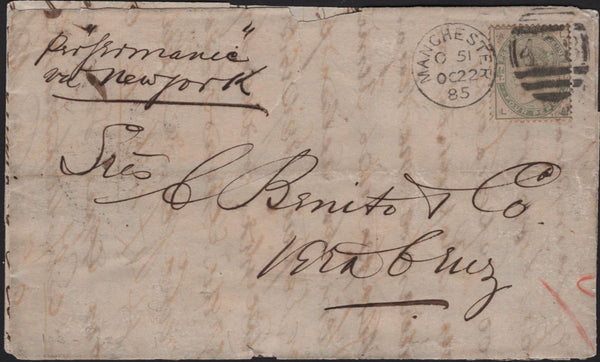 Per "Germanic"
via New York
MANCHESTER
51
OC 22
85
Sres C Benito & Co
Vera Cruz